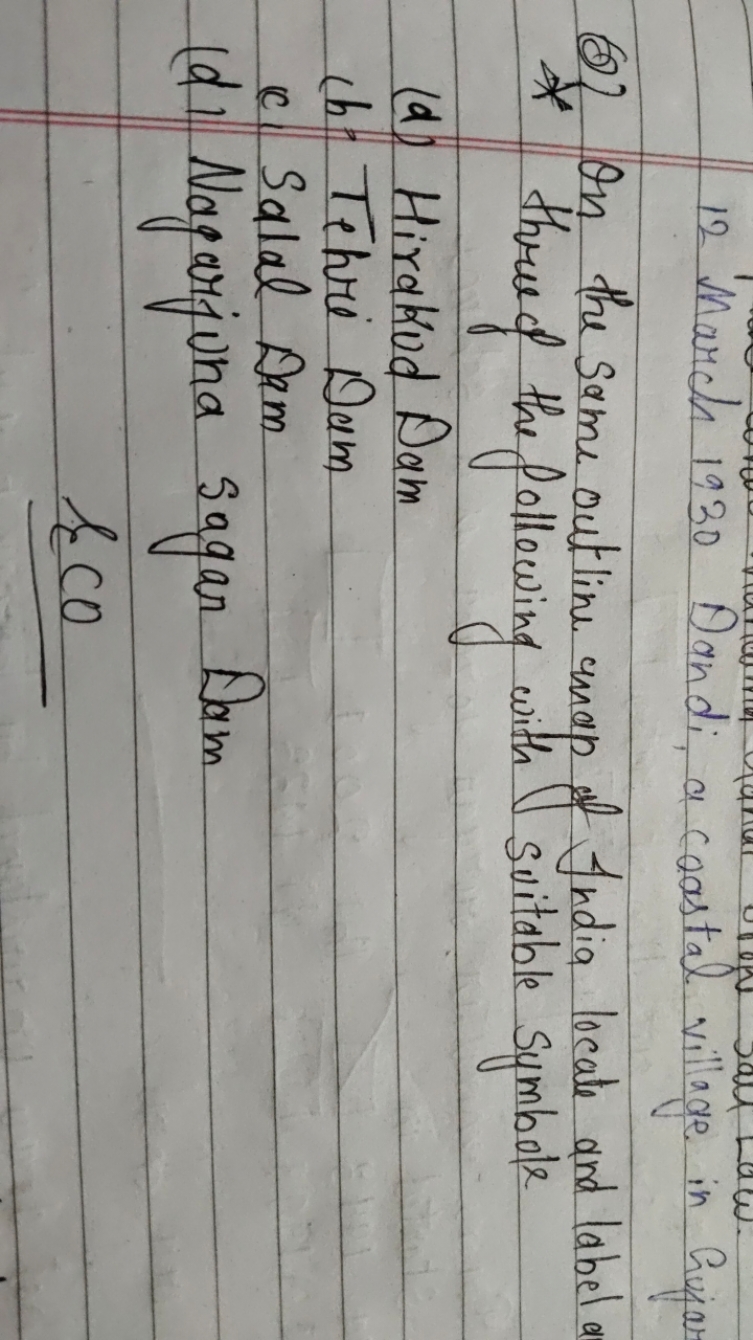 12 March 1930 Dandi, a coastal village in Gujar
Q) On the same outline map of India locate and label a
* three of the following with suitable symbols
(a) Hirakud Dam
(b) Tehri Dam
c) Salal Dam
(d) Nagarjuna Sagar Dam